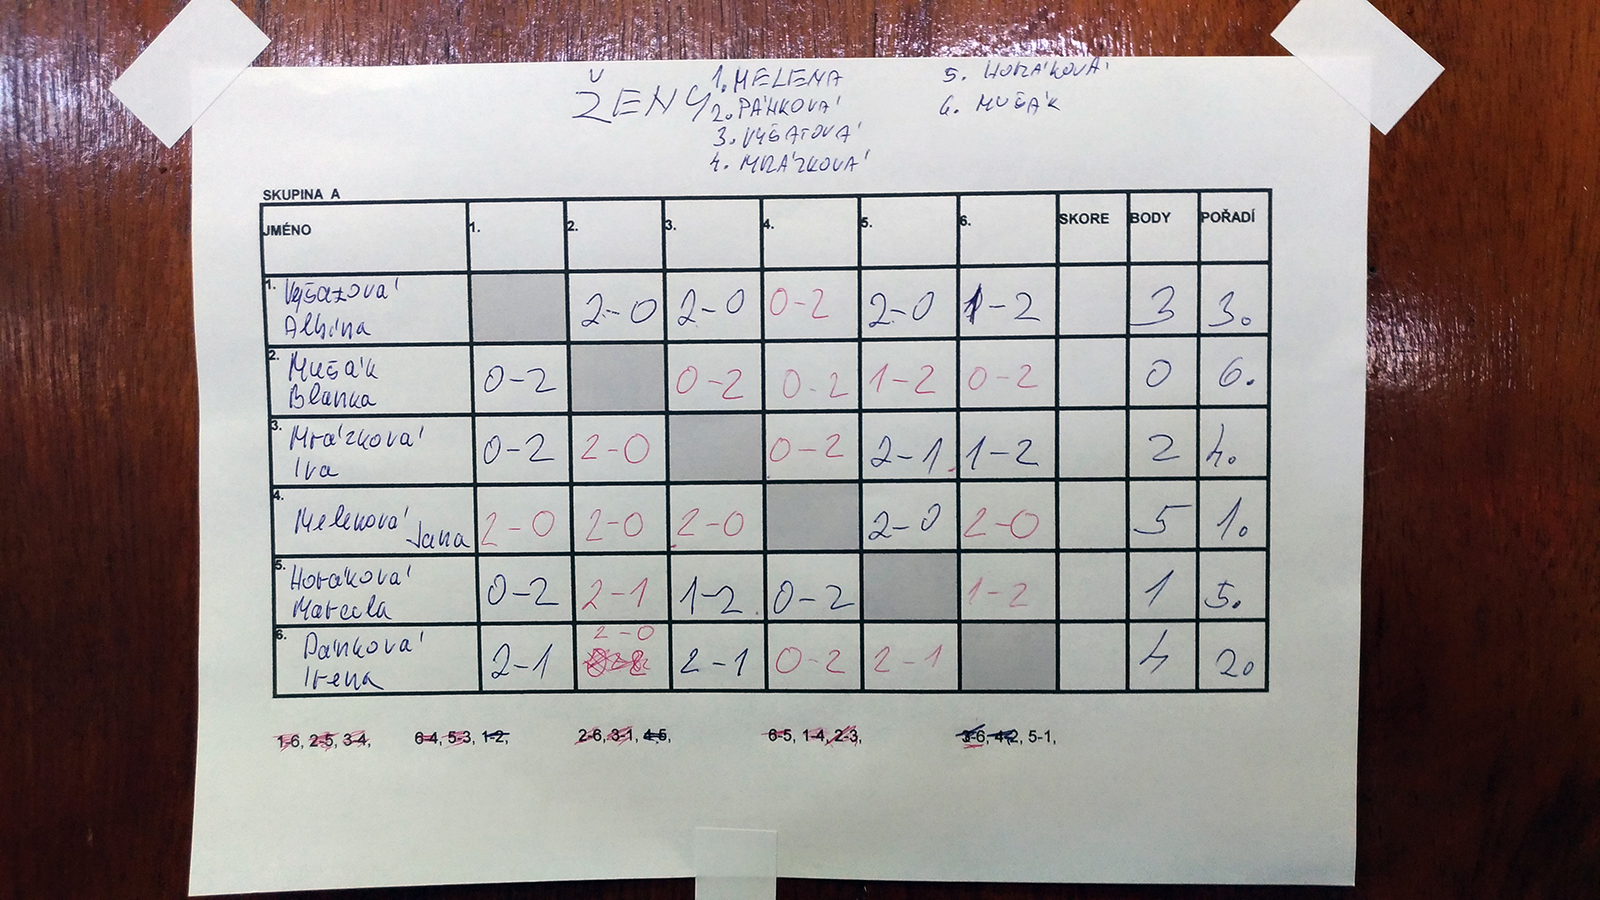 ŽENY
1. MELENA
2. PÁNKOVÁ
3. VYŠATOVÁ
4. MRÁZKOVÁ
5. HORÁKOVÁ
6. MUŠÁK
SKUPINA A
JMÉNO 1. 2. 3. 4. 5. 6. SKORE BODY POŘADÍ
1. Vyšatová 2-0 2-0 0-2 2-0 1-2 3 3.
Albína
2. Mušák 0-2 0-2 0-2 1-2 0-2 0 6.
Blanka
3. Mrázková 0-2 2-0 0-2 2-1 1-2 2 4.
Iva
4. Melenová 2-0 2-0 2-0 2-0 2-0 5 1.
Jana
5. Horáková 0-2 2-1 1-2 0-2 1-2 1 5.
Marcela
6. Pánková 2-1 2-0 2-1 0-2 2-1 4 2.
Irena
1-6, 2-5, 3-4, 6-4, 5-3, 1-2, 2-6, 3-1, 4-5, 6-5, 1-4, 2-3, 3-6, 4-2, 5-1,